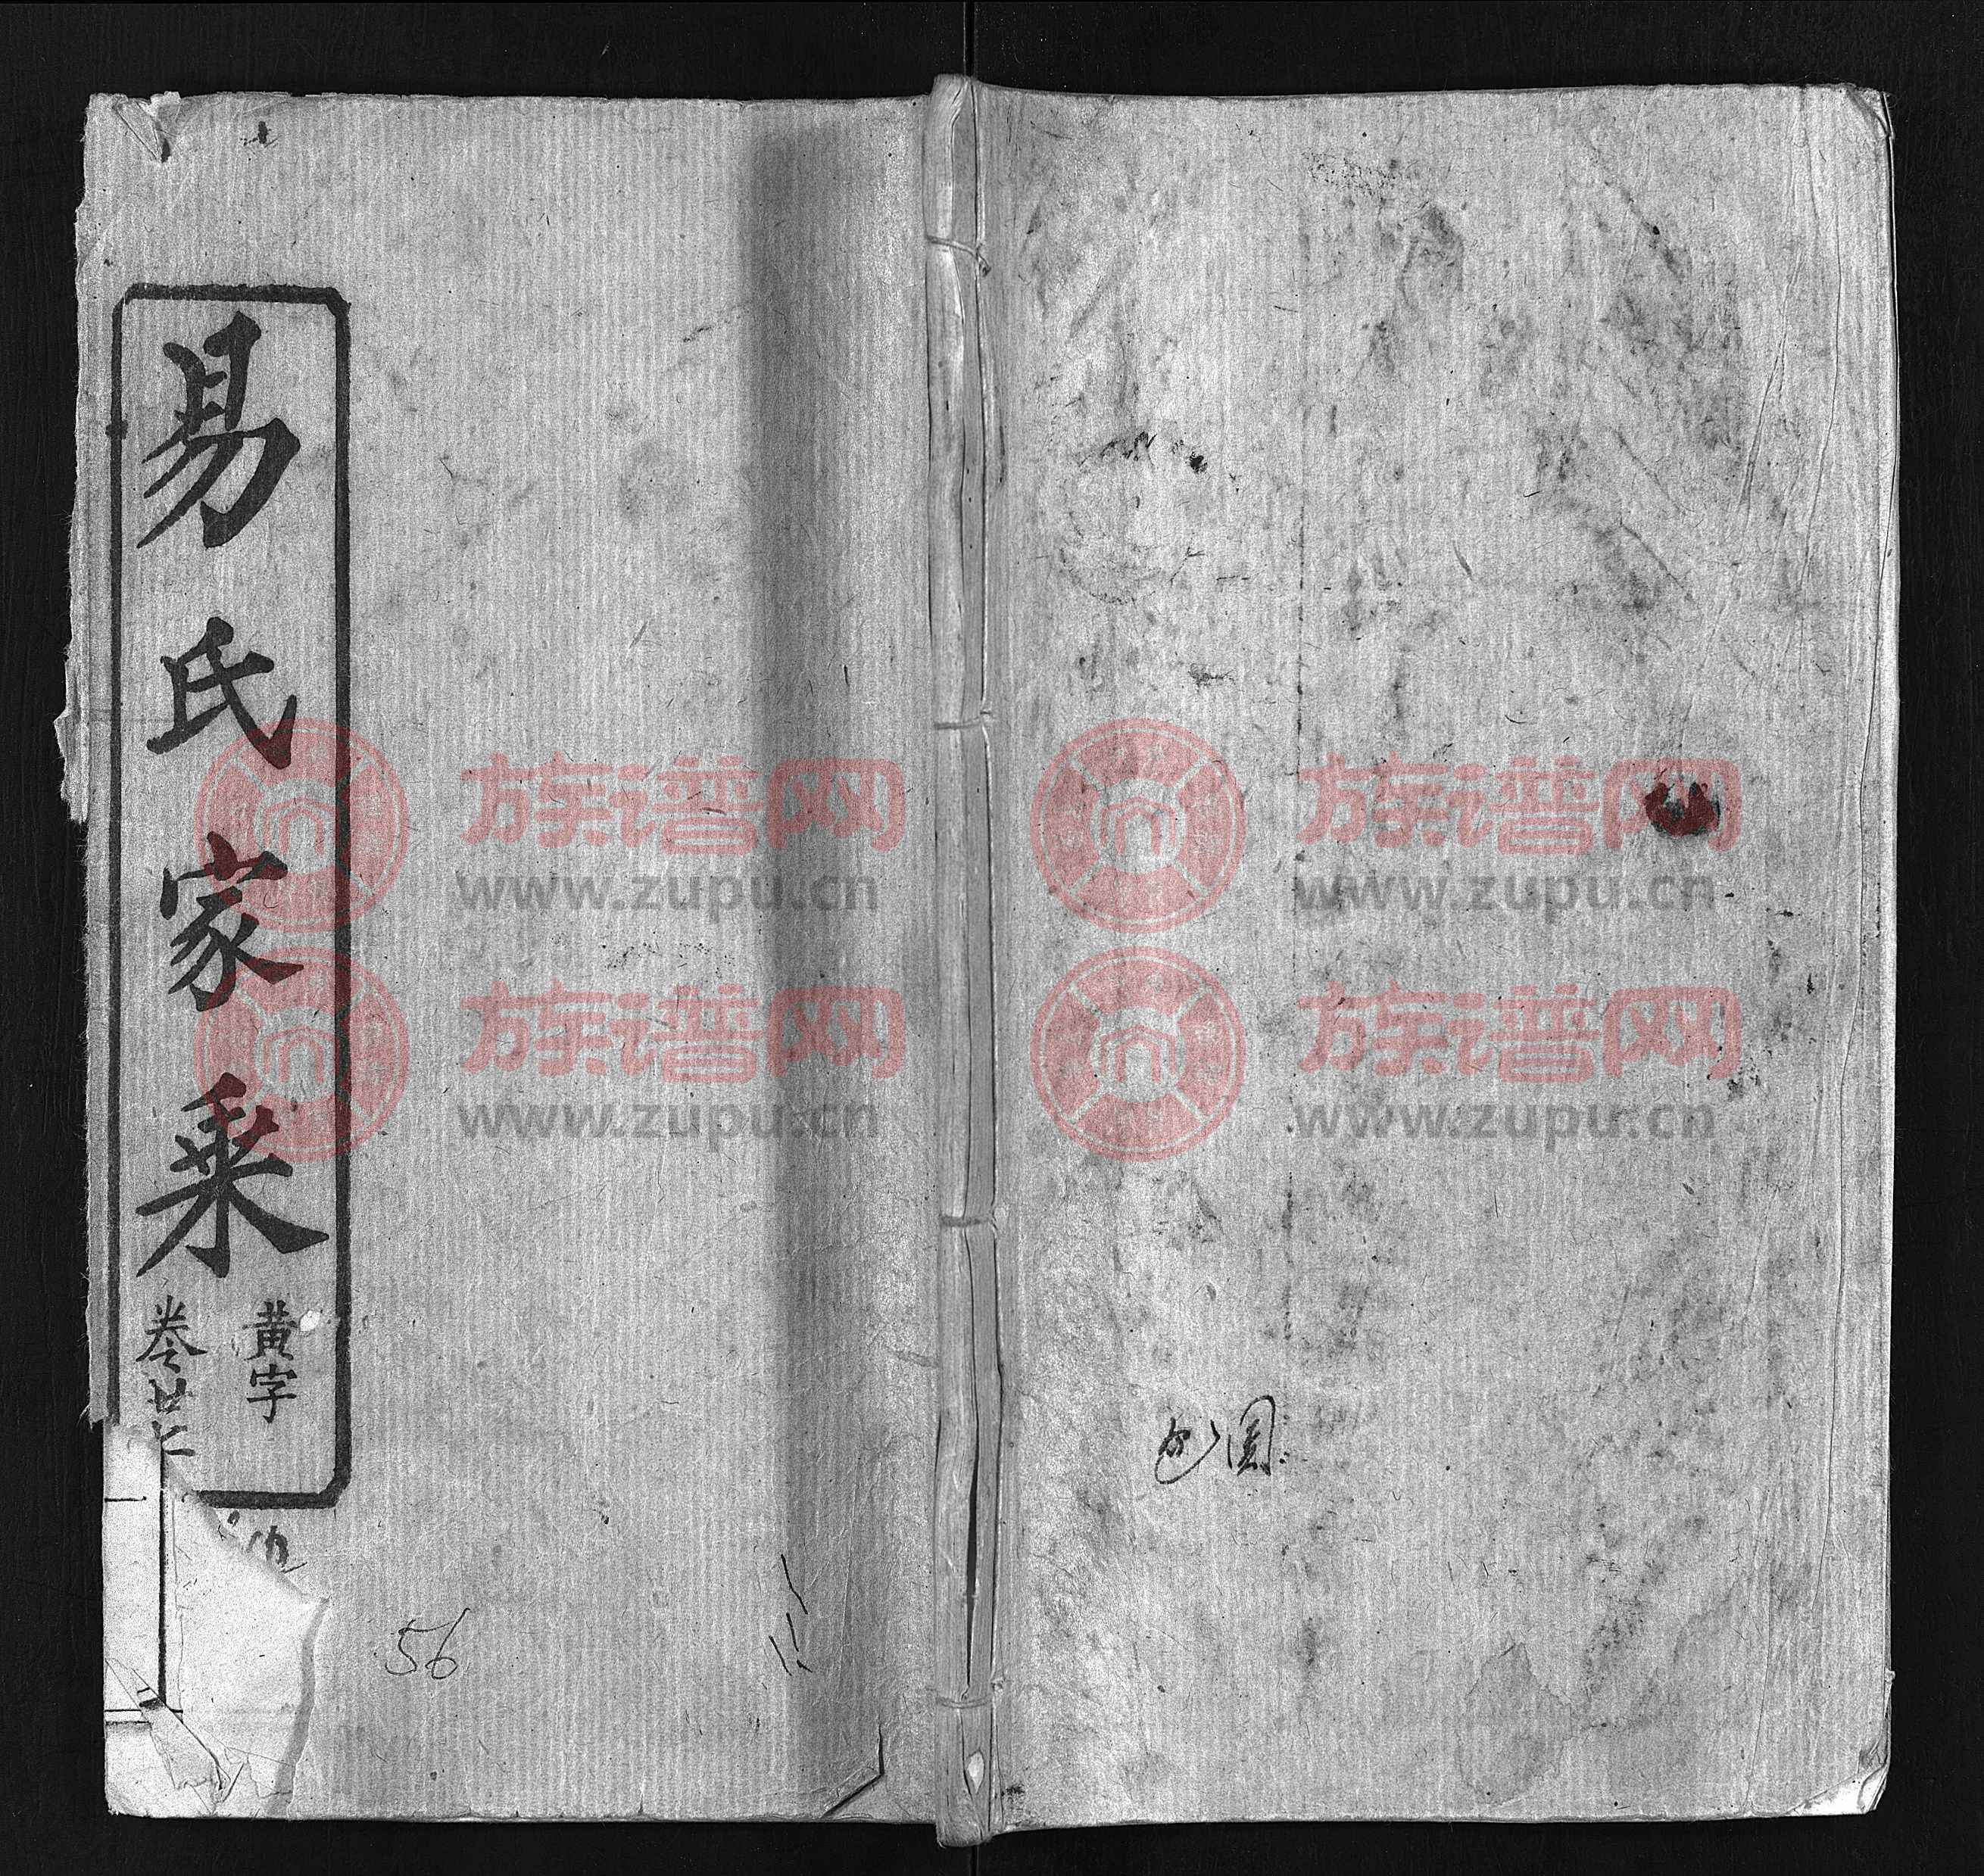 易氏家乗
黄字
卷廿七
56
族谱网
www.zupu.cn
族谱网
www.zupu.cn
族谱网
www.zupu.cn
族谱网
www.zupu.cn